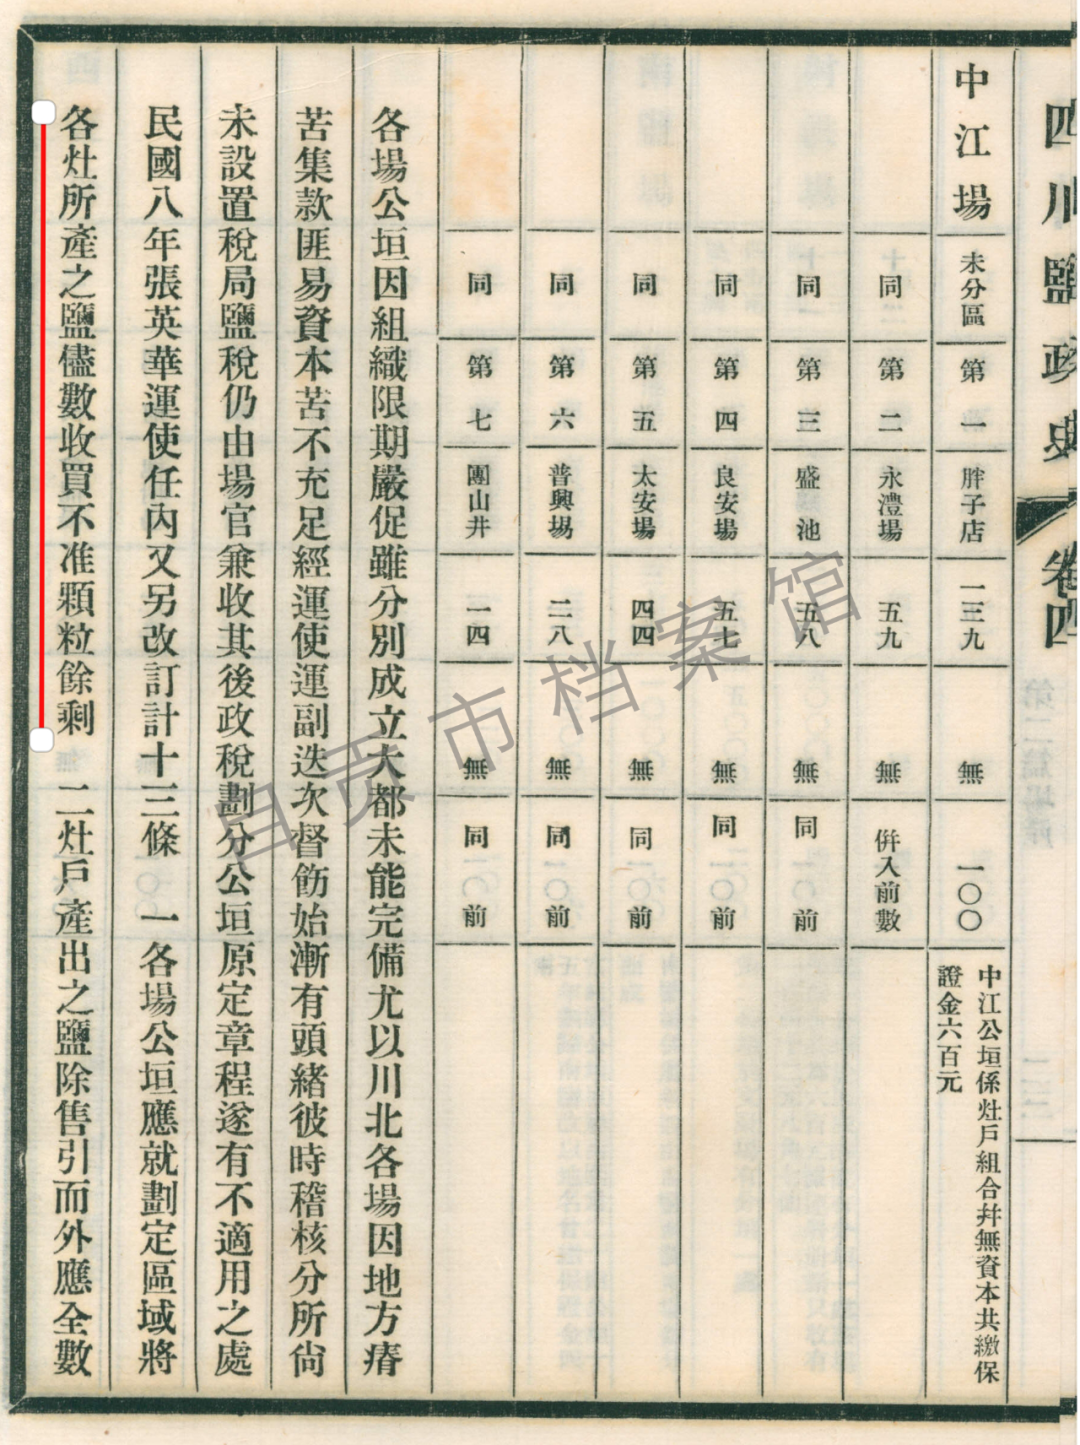 四川鹽政史
卷四
中江場 未分區 第一 胖子店 一三九 無 一〇〇 中江公垣係灶戶組合幷無資本共繳保
證金六百元
同 第二 永澧場 五九 無 併入前數
同 第三 盛池 五八 無 同前
同 第四 良安場 五七 無 同前
同 第五 太安場 四四 無 同前
同 第六 普興場 二八 無 同前
同 第七 團山井 一四 無 同前
各場公垣因組織限期嚴促雖分別成立大都未能完備尤以川北各場因地方瘠
苦集款匪易資本苦不充足經運使運副迭次督飭始漸有頭緒彼時稽核分所尙
未設置稅局鹽稅仍由場官兼收其後政稅劃分公垣原定章程遂有不適用之處
民國八年張英華運使任內又另改訂計十三條 一各場公垣應就劃定區域將
各灶所產之鹽儘數收買不准顆粒餘剩 二灶戶產出之鹽除售引而外應全數
自贡市档案馆